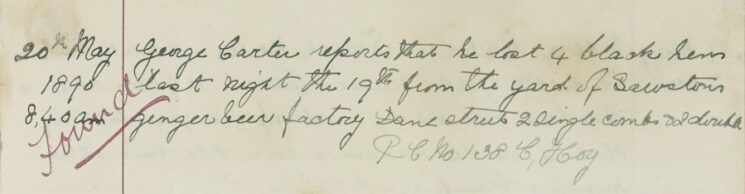 20th May George Carter reports that he lost 4 black hens
1890 last night the 19th from the yard of Sawstons
8,40am ginger beer factory Dane street 2 single combs & 2 double
Found
P C No 138 C, Hoy